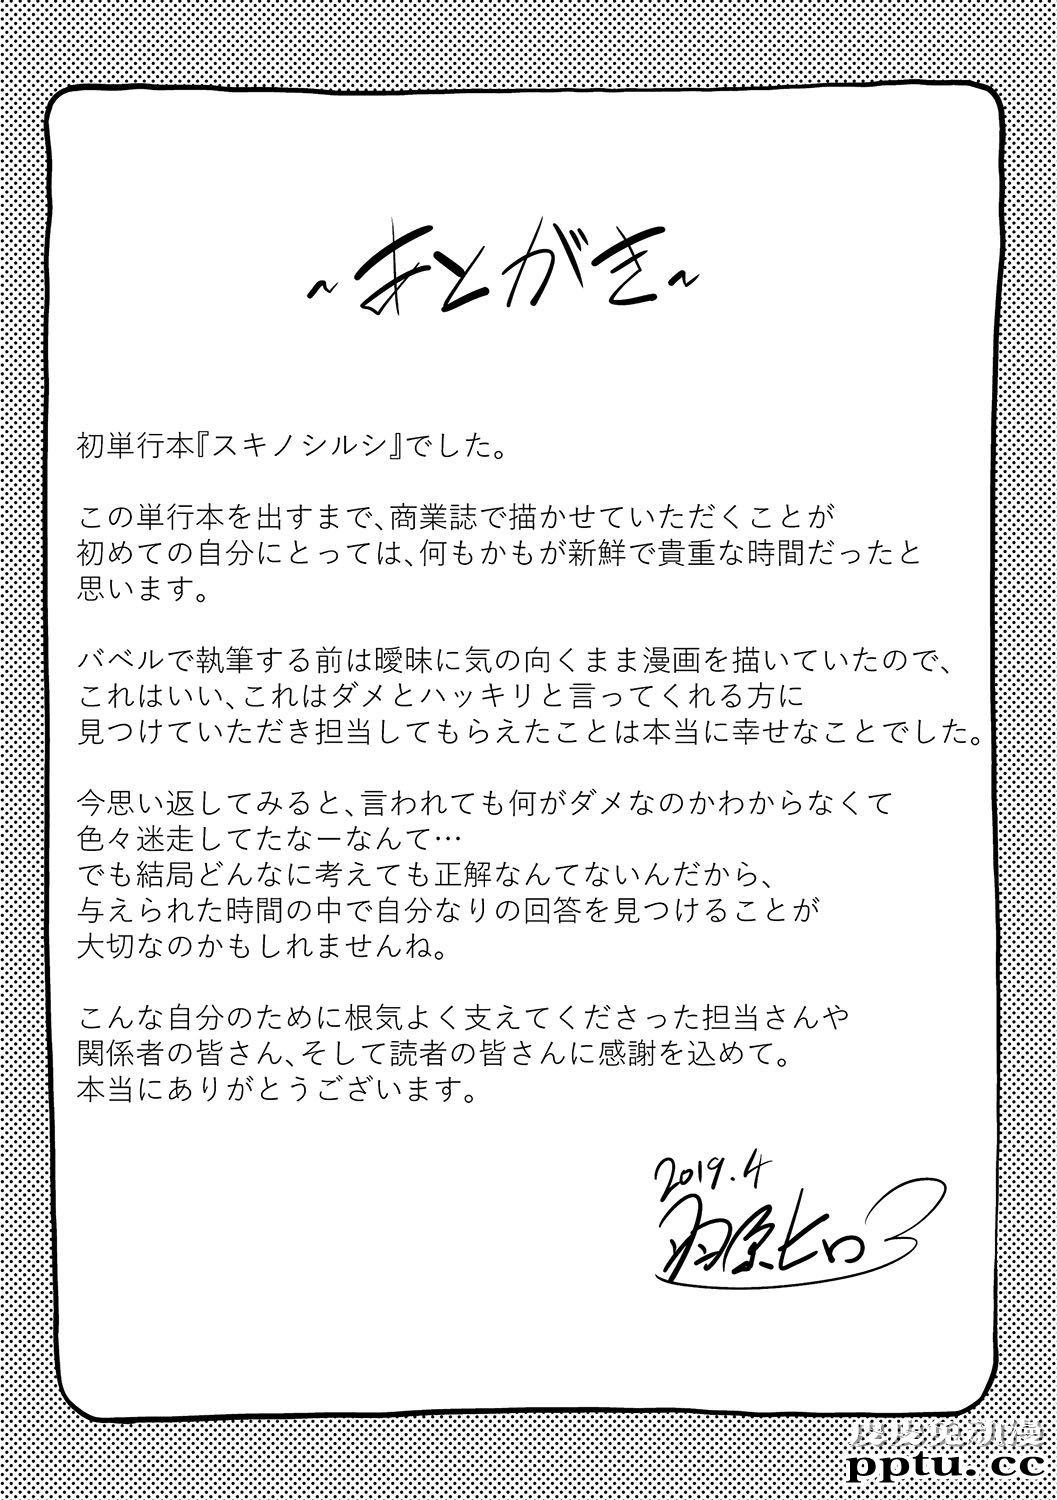 ~あとがき~
初単行本『スキノシルシ』でした。
この単行本を出すまで、商業誌で描かせていただくことが
初めての自分にとっては、何もかもが新鮮で貴重な時間だったと
思います。
バベルで執筆する前は曖昧に気の向くまま漫画を描いていたので、
これはいい、これはダメとハッキリと言ってくれる方に
見つけていただき担当してもらえたことは本当に幸せなことでした。
今思い返してみると、言われても何がダメなのかわからなくて
色々迷走してたなーなんて…
でも結局どんなに考えても正解なんてないんだから、
与えられた時間の中で自分なりの回答を見つけることが
大切なのかもしれませんね。
こんな自分のために根気よく支えてくださった担当さんや
関係者の皆さん、そして読者の皆さんに感謝を込めて。
本当にありがとうございます。
2019.4
羽原ヒロ
皮皮兔动漫
pptu.cc